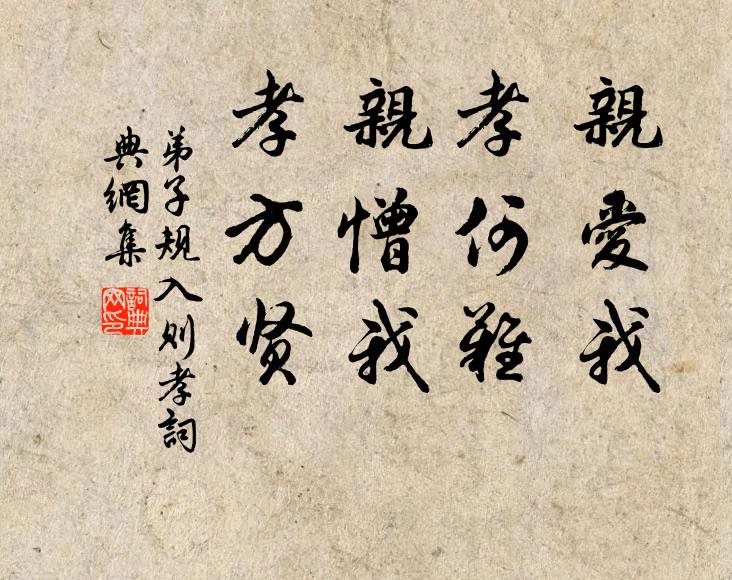 親愛我
孝何難
親憎我
孝方贤
弟子規入则孝詞
典網集
詞典
网印